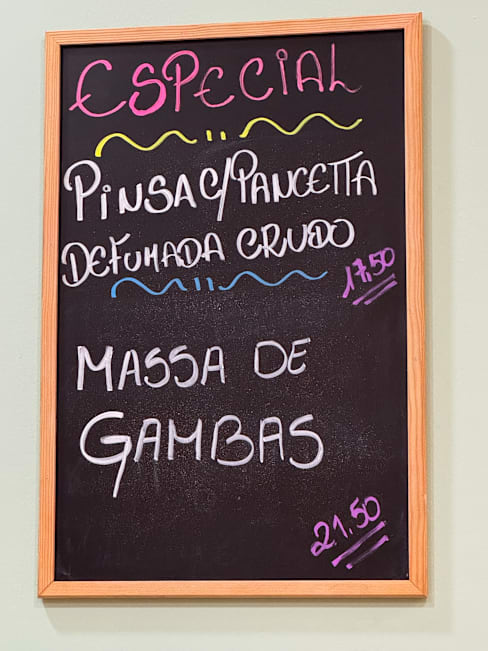 ESPECIAL
PINSA C/PANCETTA
DEFUMADA CRUDO
17,50
MASSA DE
GAMBAS
21.50